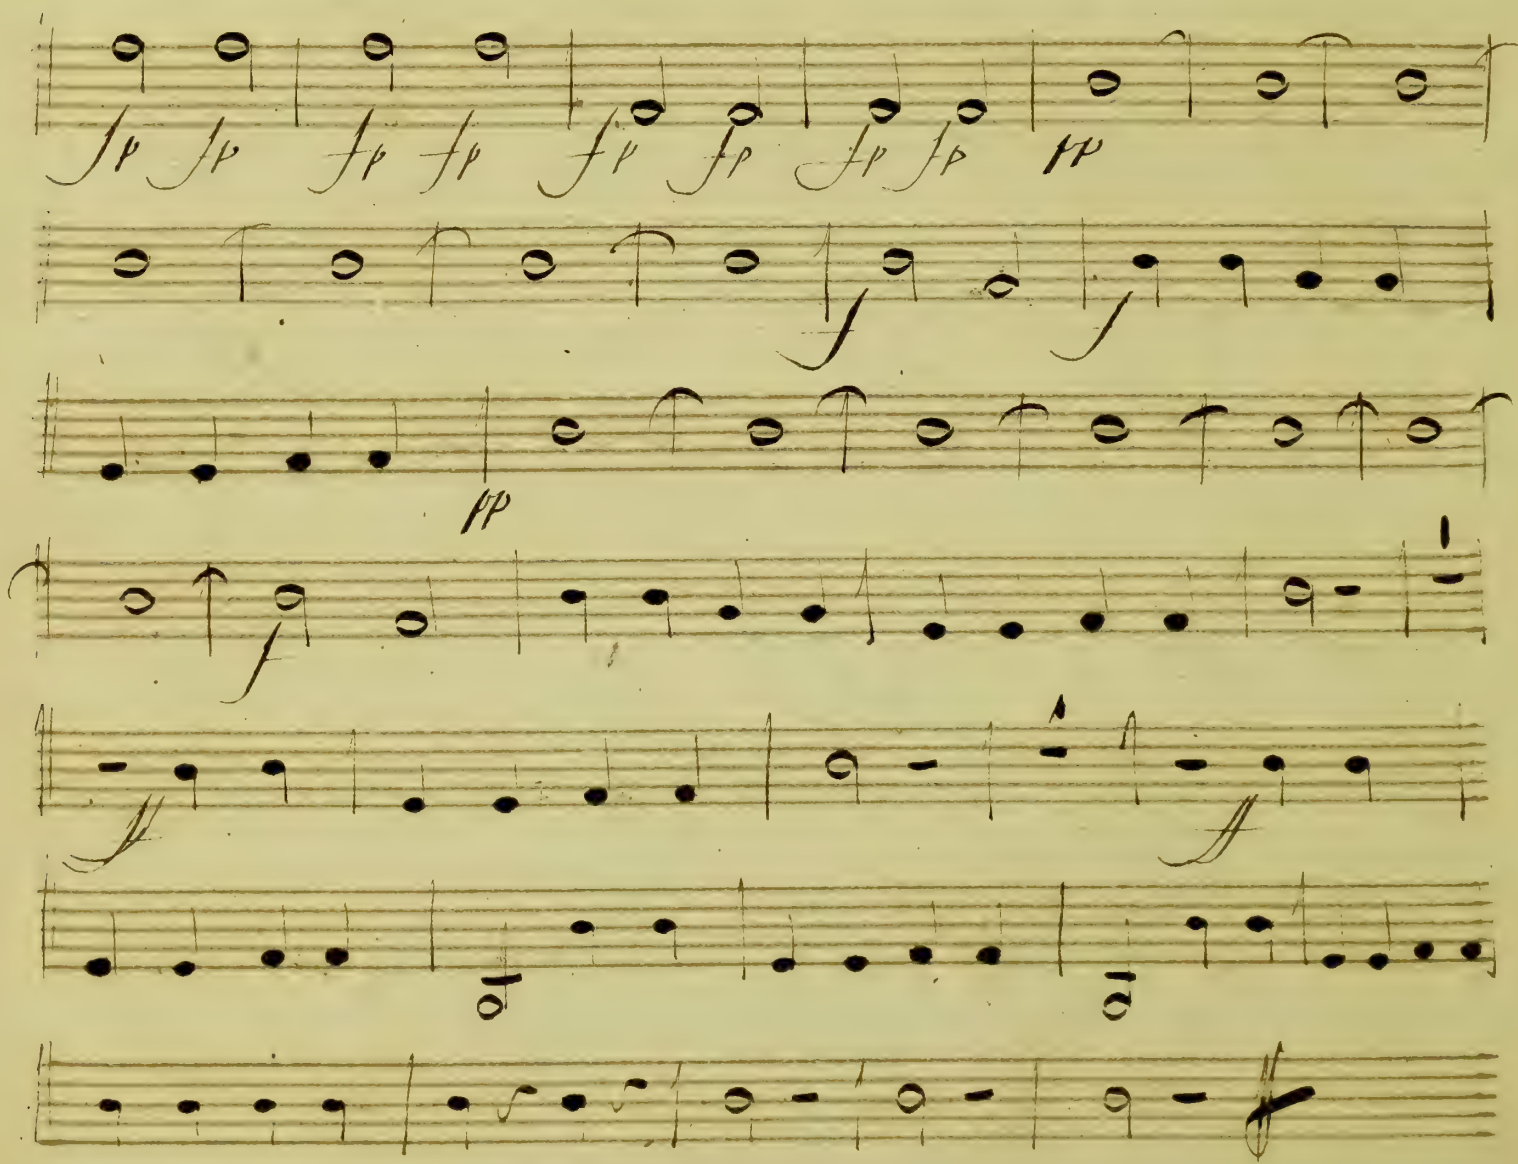 fp fp fp fp fp fp fp fp pp
f f
pp
f
ff ff